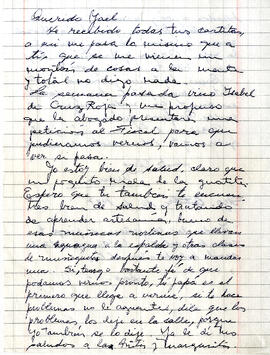 Querido Gael
He recibido todas tus cartitas,
a mi me pasa lo mismo que a
ti, que se me vienen un
montón de cosas a la mente
y total no digo nada.
La semana pasada vino Isabel
de Cruz Roja y me propuso
que la abogado presentara una
petición al Fiscal para que
pudieramos vernos, vamos a
ver si pasa.
Yo estoy bien de salud, claro que
un poquito mala de la guatita.
Espero que tu tambien te encuen
tres bien de salud y tratando
de aprender artesanía, bueno de
esas muñecas nortinas que llevan
una a la espalda y otras clases
de muñequitos despues te voy a mandar
una. Si, tengo bastante fé de que
podamos vernos pronto, tu papá es el
primero que llega a verme, si te hace
problemas no le, dile que los
problemas los deje en la calle, porque
yo también se lo dije. Ya le di tus
saludos a las y